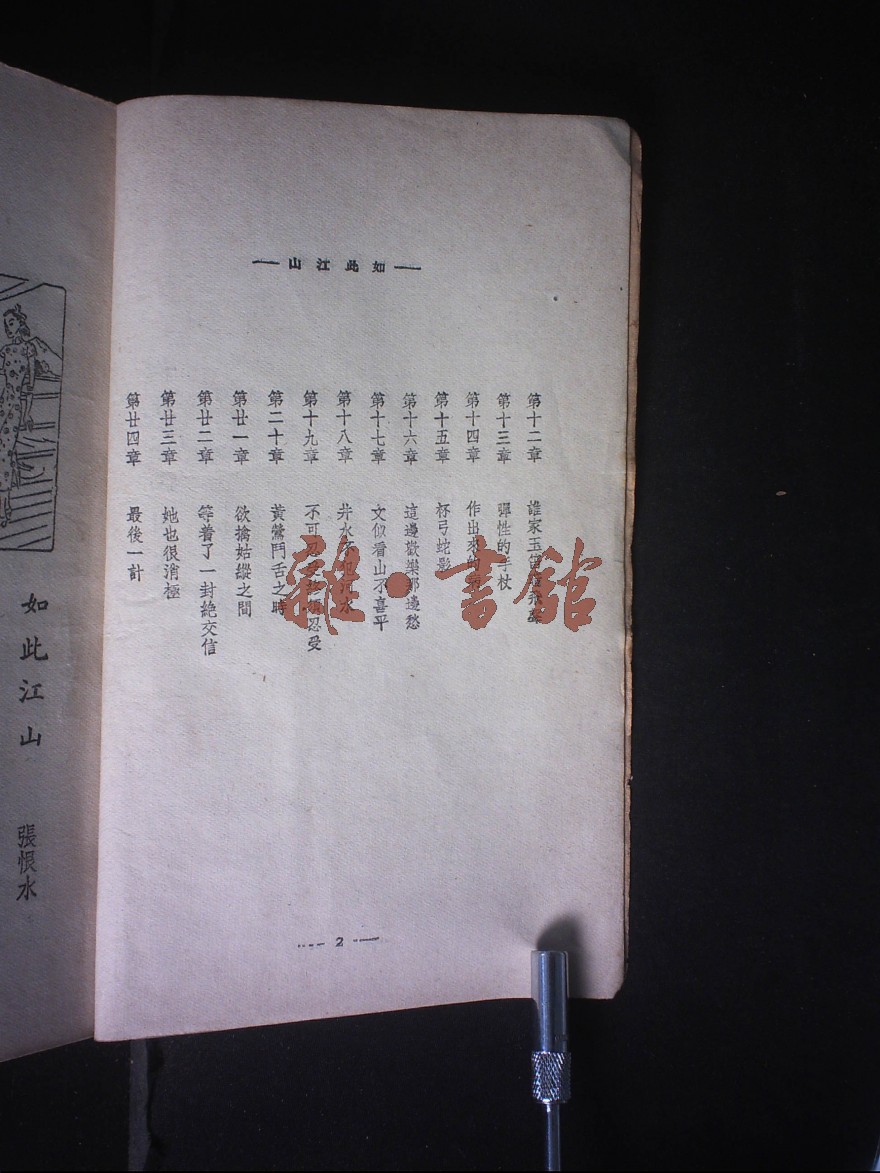 如此江山
第十二章 誰家玉笛
第十三章 彈性的手杖
第十四章 作出來的
第十五章 杯弓蛇影
第十六章 這邊歡樂那邊愁
第十七章 文似看山不喜平
第十八章 井水不犯河水
第十九章 不可忍受 忍受
第二十章 黃鶯鬥舌之時
第廿一章 欲擒姑縱之間
第廿二章 等着了一封絶交信
第廿三章 她也很消極
第廿四章 最後一計
2
如此江山
張恨水
雜·書館